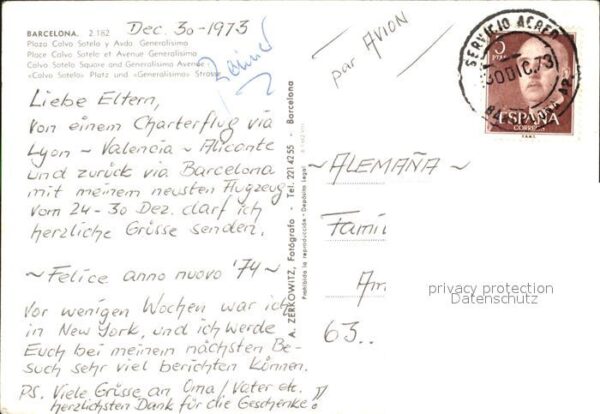 BARCELONA. 2.182
Plaza Calvo Sotelo y Avda. Generalísimo
Place Calvo Sotelo et Avenue Generalísimo
Calvo Sotelo Square and Generalísimo Avenue
«Calvo Sotelo» Platz und «Generalísimo» Strasse
Dec. 30-1973
Liebe Eltern,
von einem Charterflug via
Lyon ~ Valencia ~ Alicante
und zurück via Barcelona
mit meinem neusten Flugzeug
vom 24-30 Dez. darf ich
herzliche Grüsse senden.
~ Felice anno nuovo '74 ~
Vor wenigen Wochen war ich
in New York, und ich werde
Euch bei meinem nächsten Be-
such sehr viel berichten können.
PS. Viele Grüsse an Oma/Vater etc.
herzlichsten Dank für die Geschenke!!
A. ZERKOWITZ, Fotógrafo - Tel. 221 42 55 - Barcelona
Prohibida la reproducción - Depósito Legal
par AVION
SERVICIO AEREO
30 DIC. 73
5
PTAS
ESPAÑA
CORREOS
~ ALEMAÑA ~
Famil
Am
63..
privacy protection
Datenschutz